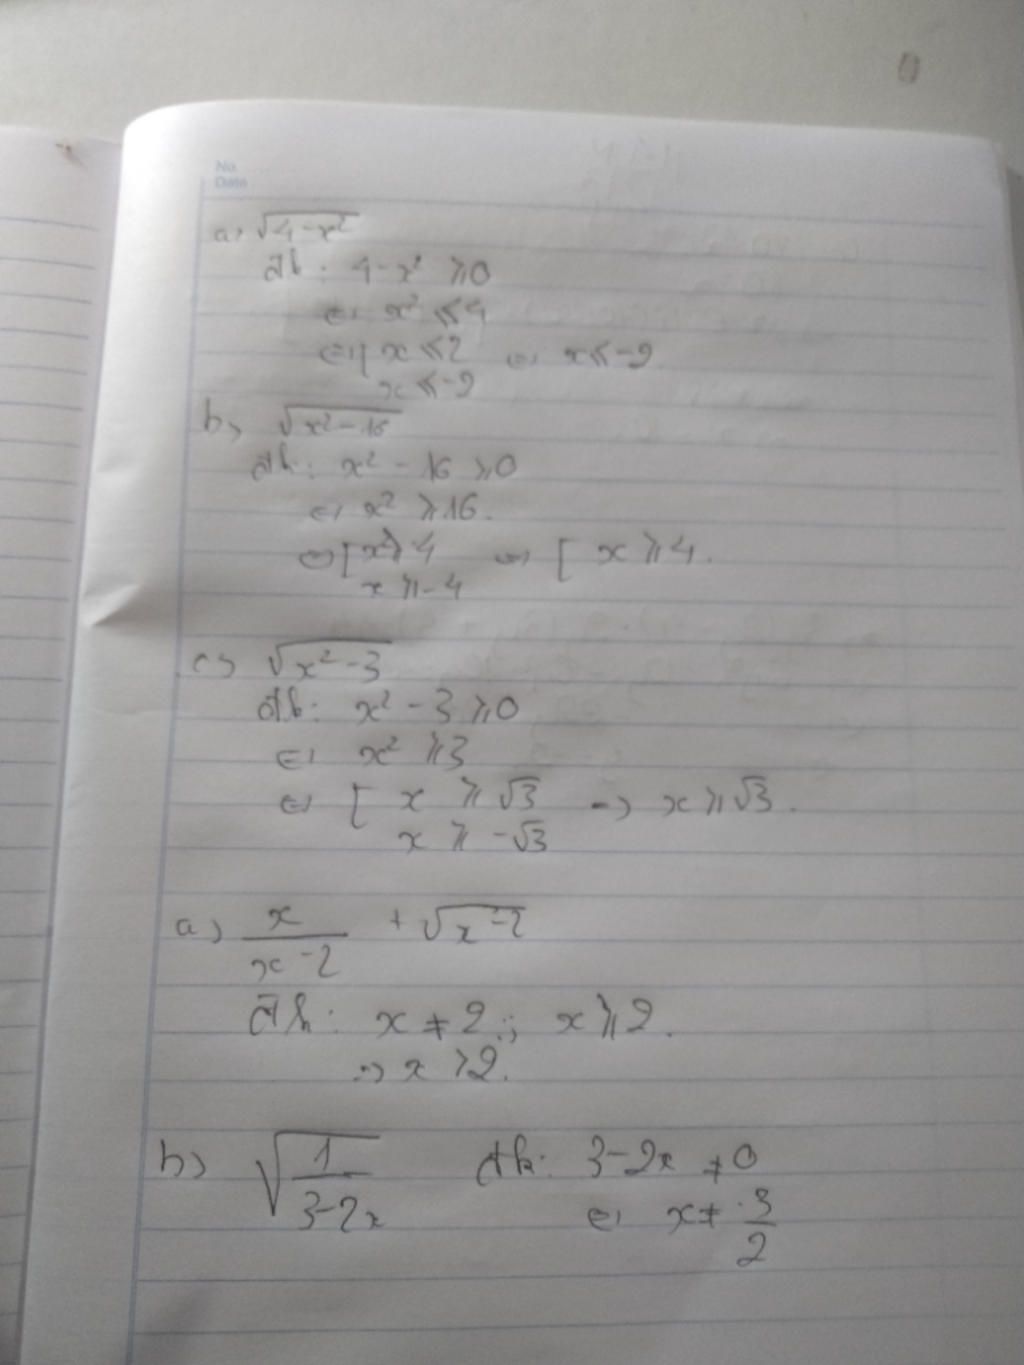 No.
Date
a, √(4-x²)
Đk: 4-x² ⩾0
⇔ x² ⩽4
⇔[ x ⩽2 ⇔ x⩽-2
x ⩽-2
b, √(x²-16)
Đk: x² - 16 ⩾0
⇔ x² ⩾16.
⇔[ x⩾4 ⇔ [ x ⩾4.
x ⩾-4
c, √(x²-3)
Đk: x² - 3 ⩾0
⇔ x² ⩾3
⇔ [ x ⩾ √3 => x ⩾√3.
x ⩾ -√3
a) x/(x-2) + √(x-2)
Đk: x ≠ 2 ; x ⩾2.
=> x >2.
b) √(1/(3-2x)) Đk: 3-2x ≠0
⇔ x≠ 3/2